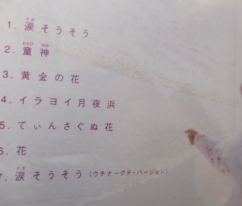 1. 涙そうそう
2. 童神
3. 黄金の花
4. イラヨイ月夜浜
5. てぃんさぐぬ花
6. 花
7. 涙そうそう (ウチナーグチ・バージョン)